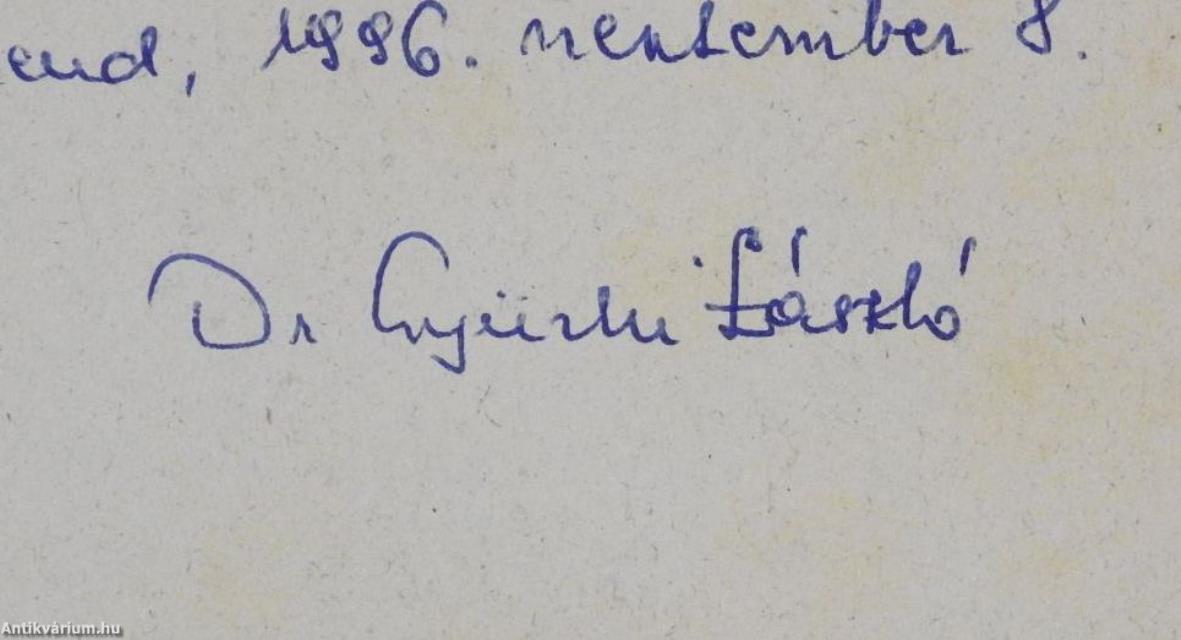 end, 1996. szeptember 8.
Dr Gyürki László
Antikvárium.hu